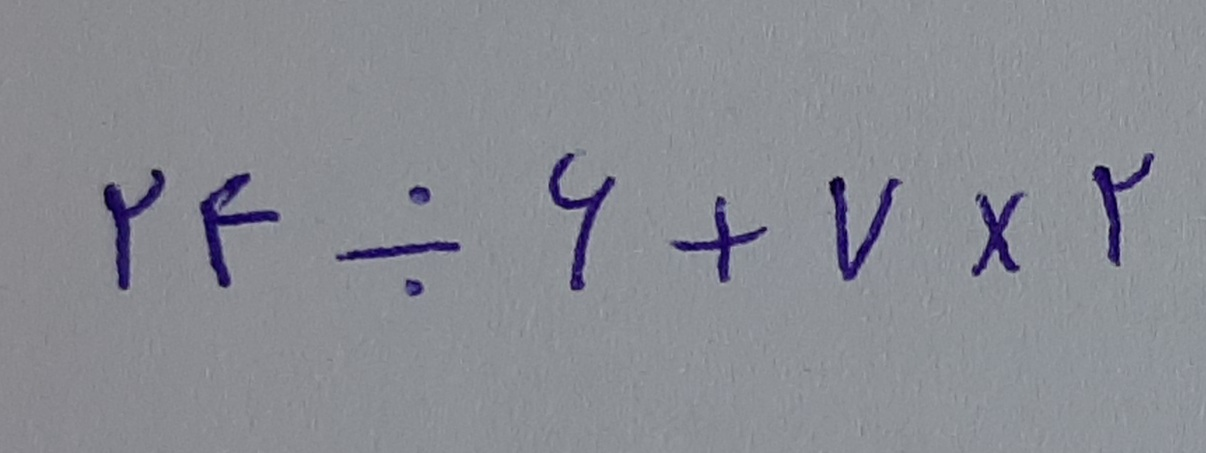 ۲۴ ÷ ۶ + ۷ × ۲